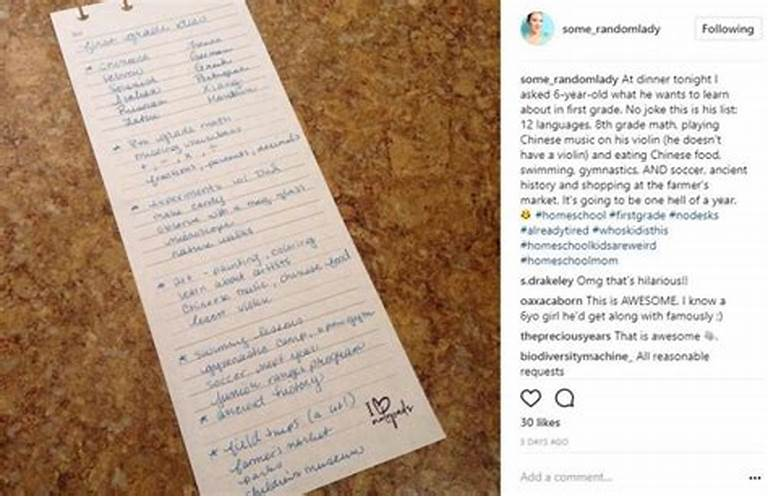 first grade
* Chinese French
Hebrew German
Spanish Greek
Italian Portuguese
Russian
Latin
* 8th grade math
+, -, x, ÷
fractions, percents, decimals
* experiments w/ Dad
make candy
observe with a mag. glass
microscope
nature walks
* art - painting, coloring
learn about artists
Chinese music, Chinese food
learn violin
* swimming lessons
gymnastic camp, open gym
soccer next year
junior ranger program
* ancient history
* field trips (a lot!)
farmers market
parks
children's museum
I
notepads
some_randomlady
Following
some_randomlady At dinner tonight I
asked 6-year-old what he wants to learn
about in first grade. No joke this is his list:
12 languages, 8th grade math, playing
Chinese music on his violin (he doesn't
have a violin) and eating Chinese food,
swimming, gymnastics, AND soccer, ancient
history and shopping at the farmer's
market. It's going to be one hell of a year.
#homeschool #firstgrade #nodesks
#alreadytired #whoskidisthis
#homeschoolkidsareweird
#homeschoolmom
s.drakeley Omg that's hilarious!!
oaxacaborn This is AWESOME. I know a
6yo girl he'd get along with famously :)
thepreciousyears That is awesome
biodiversitymachine_ All reasonable
requests
30 likes
3 DAYS AGO
Add a comment...